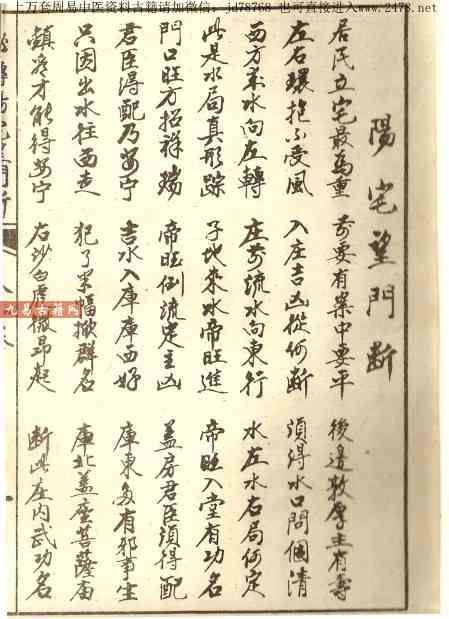 上万套周易中医资料古籍请加微信：jd78768 也可直接进入www.2478.net
陽宅望門断
居民立宅最為重 前要有案中要平 後邊敦厚主有壽
左右環抱不受風 入庄吉凶從何断 須得水口問個清
西方來水向左轉 庄前流水向東行 水左水右局何定
此是水局真形踪 子地來水帝旺進 帝旺入堂有功名
門口旺方招祥瑞 帝旺倒流定主凶 盖房君臣須得配
君臣得配乃安宁 吉水入庫庫西好 庫東多有邪事生
只因出水往西走 犯了 群名 庫北盖座菩薩庙
鎮 才能得安宁 右沙白虎微昂起 断此庄内武功名
九易古籍网